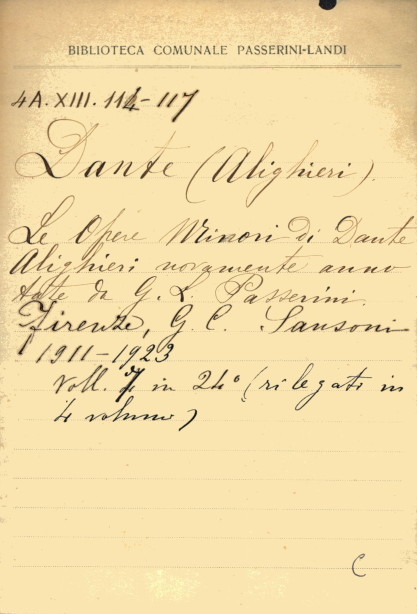 BIBLIOTECA COMUNALE PASSERINI-LANDI
4A. XIII. 114-117
Dante (Alighieri).
Le Opere Minori di Dante
Alighieri novamente anno
tate da G. L. Passerini.
Firenze, G. C. Sansoni
1911-1923
Voll. 7 in 24° (rilegati in
4 volumi)
C